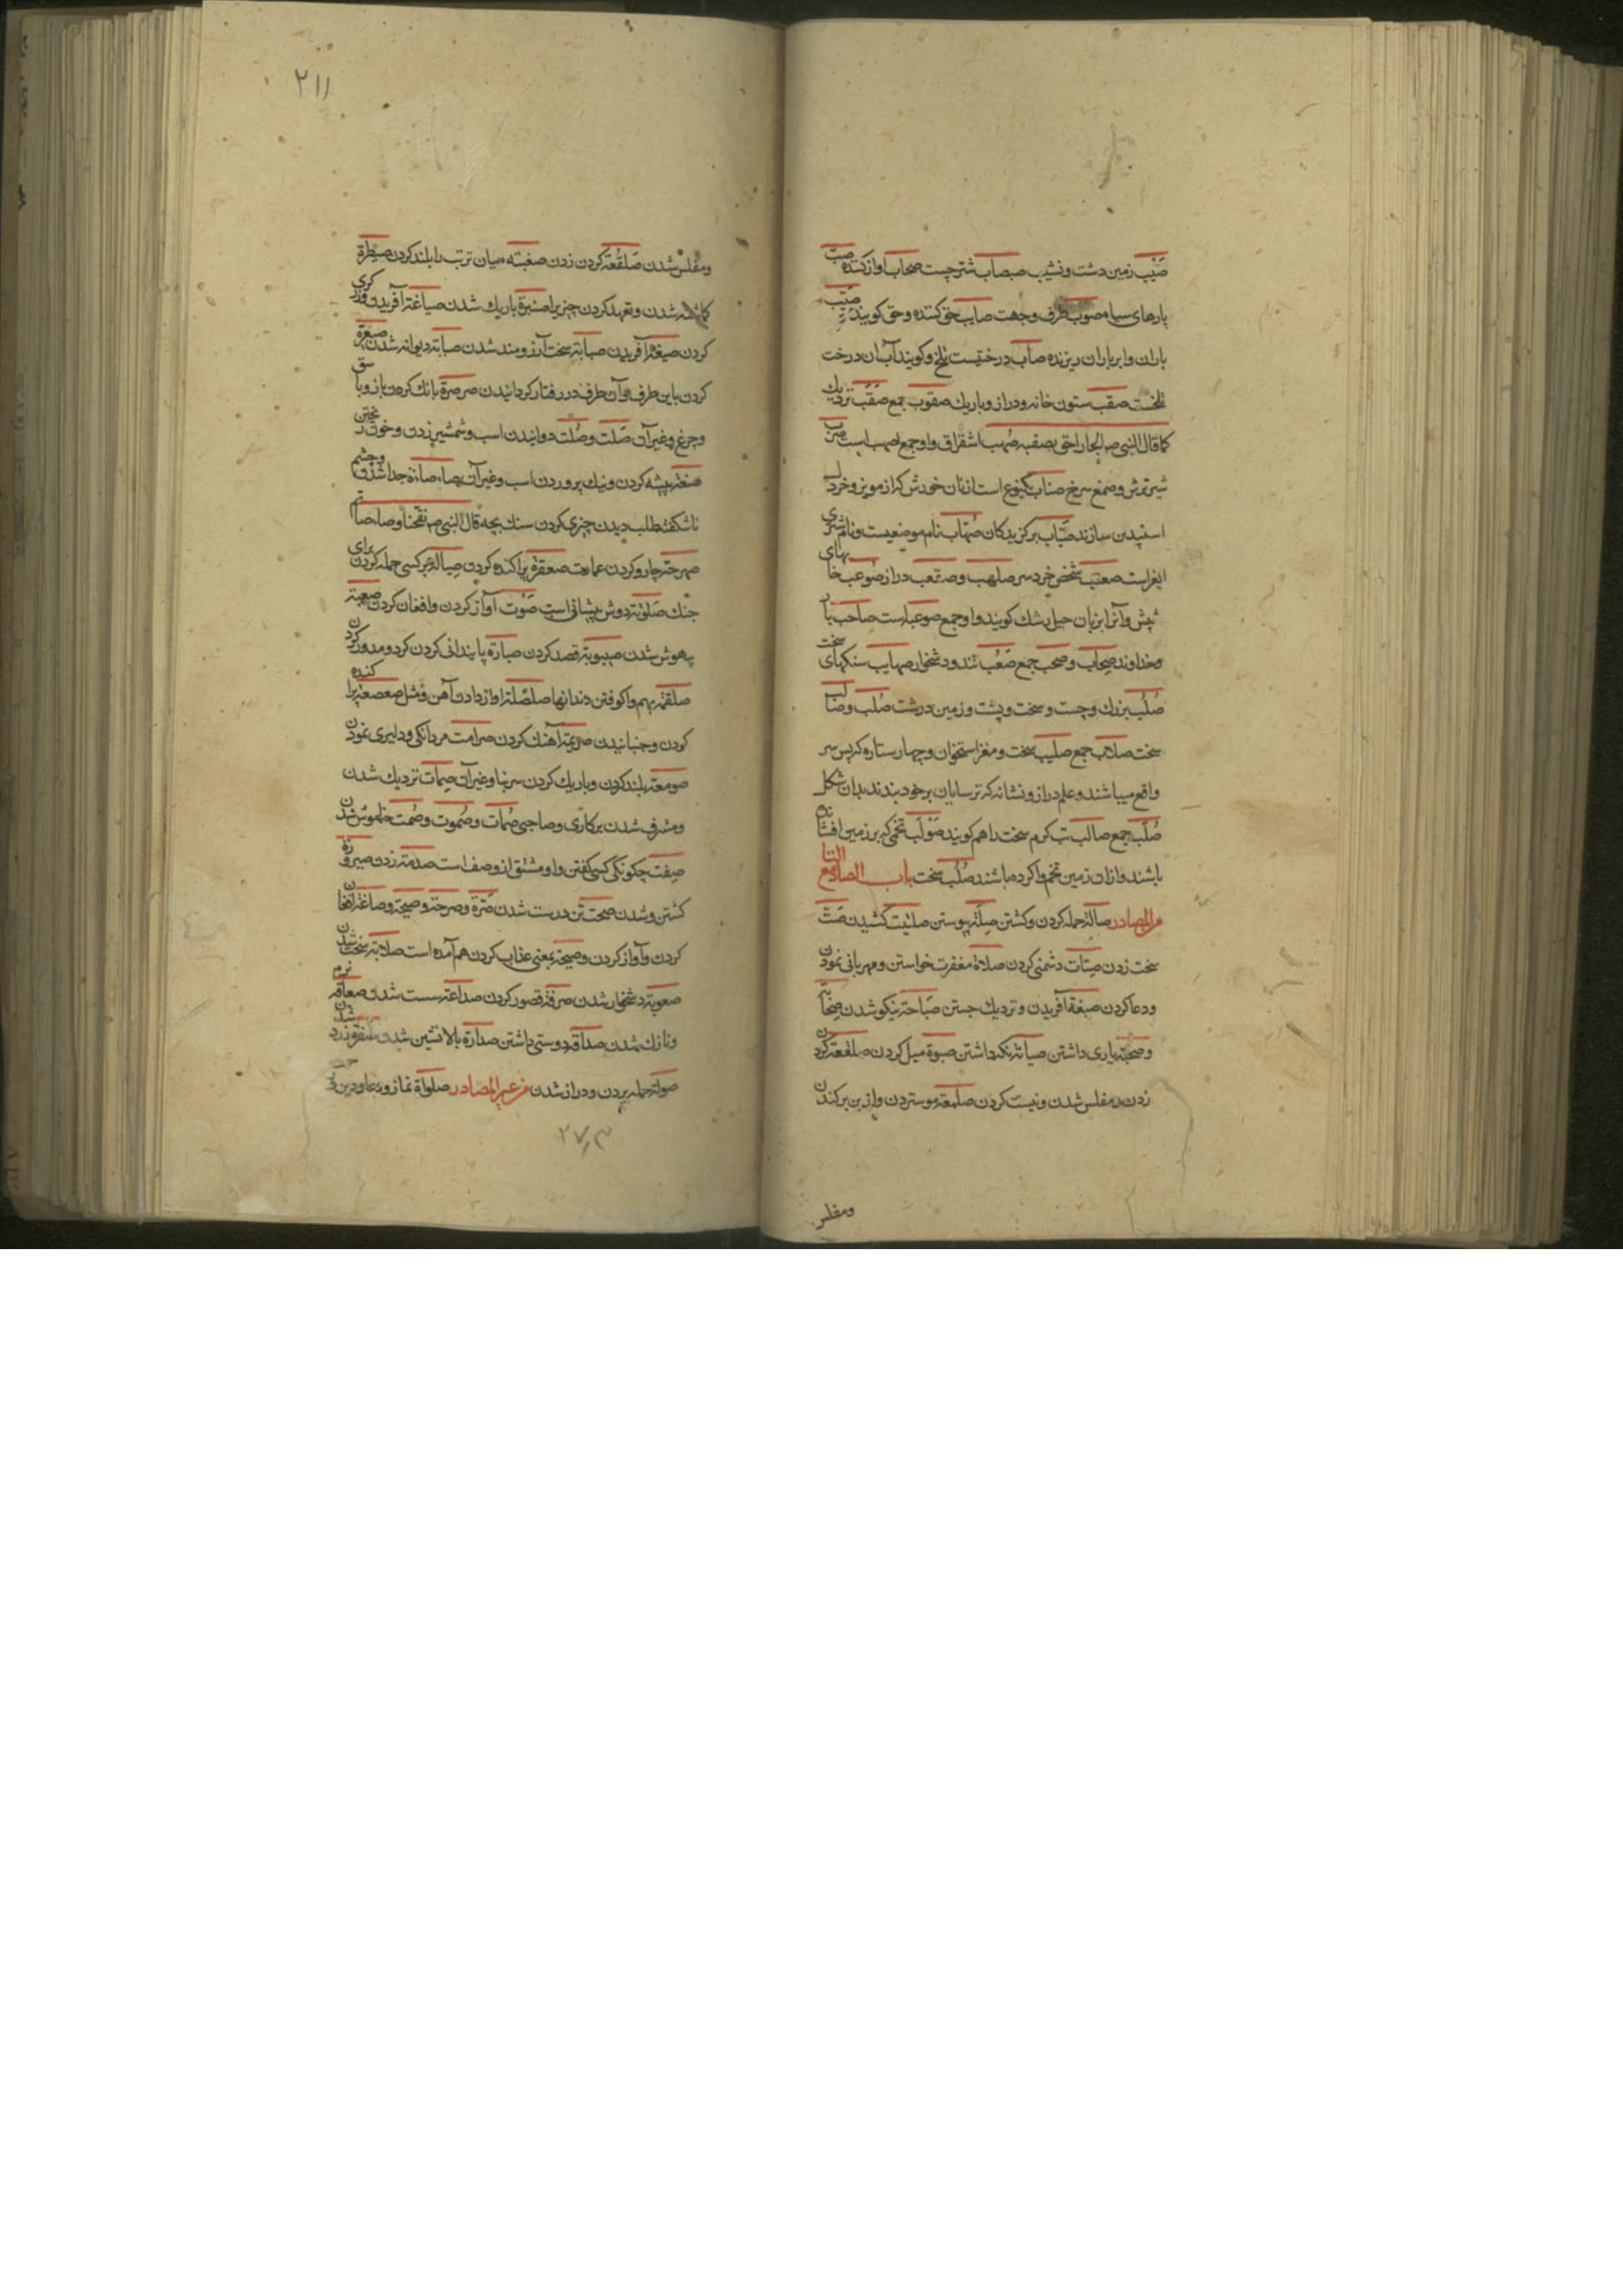 صَبَب زمین دشت و نشیب صبصاب شتر چست صخاب آواز کننده صیب
پارهای سیاه صوب طرف وجهت صایب حق کننده و حق کویند صَیّب
باران و ابر باران ریزنده صاب درختیست تلخ و کویند آب آن درخت
تلخست صقب ستون خانه و دراز و باریك صقوب جمع صَقَب نزدیك
کما قال النبی صم الجار احق بصقبه صُهب اشقراق و او جمع اصهب است صرب
شیر ترش و صمغ سرخ صناب یکنوع است از نان خورش که از مویز و خردل
اسپیدن سازند صُیّاب برکزیدکان صُهاب نام موضعیست و نام شتری
شخص خرد سر صلهب و صقعب دراز
شپش و آنرا بزبان جیل رشك کویند و او جمع صوعبه است صاحب یار
و خداوند صِحاب و صحب جمع صَعْب تند و دشخوار صهایب سنکهای سخت
صُلْب بزرك و چست و سخت و پشت و زمین درشت صُلب و صالب
سخت صلاب جمع صلیب سخت و مغز استخوان و چهار ستاره که پس سر
واقع میباشند و علم دراز و نشانه که ترسایان برخود بندند بدان شکل
صُلُب جمع صالب تب کرم سخت را هم کویند صَوْلَب تخمی که بر زمین افشانده
باشند و ازان زمین تخم وا کرده باشند صُلَّب سخت باب الصاد مع التا
من المصادر صالة حمله کردن و کشتن صِلَة پیوستن صلیت کشیدن صَتّ
سخت زدن صِتات دشمنی کردن صلاة مغفرت خواستن و مهربانی نمودن
و دعا کردن صبغة آفریدن و نزدیك جستن صَباحة نیکو شدن
و صحبة یاری داشتن صیانة نکه داشتن صبوة میل کردن صلفعة کردن
زدن و مفلس شدن و نیست کردن صلمعة موستردن و از بن برکندن
ومفلس
۲۱۱
و مفلس شدن صَلقَعَة کردن زدن میان ترتب را بلند کردن صیطرة
کماشته شدن و تعهد کردن چیزیرا صنبرة باریك شدن صیاغة آفریدن و زرکری
کردن صیغة آفریدن صبابة سخت آرزومند شدن صبابة دیوانه شدن صعرة
کردن باین طرف و آن طرف در رفتار کردانیدن صرصرة بانك کردن باز و باشق
و چرغ و غیر آن صَلت و صُلت دوانیدن اسب و شمشیر زدن و خون ریختن
صنعة پیشه کردن و نیك پروردن اسب و غیر آن
ناشکفته طلب دیدن چیزی کردن سنك بچه قال النبی صم فقحنا و صاصاتم
صهرجة چارو کردن عمارت صعقرة پراکنده کردن صیالة بر کسی حمله کردن برای
جنك صَلْوَتَة دوش پیشانی است صَوْت آواز کردن و افغان کردن صعیتة
بیهوش شدن صیبوبة قصد کردن صبارة پایندانی کردن کرد و مدور کردن
صلقة بهم واکوفتن دندانها صلصلة اواز دادن آهن و مثل صعصعة پراکنده
کردن و جنبانیدن صریمة آهنك کردن صرامت مردانکی و دلیری نمودن
صومعة بلند کردن و باریك کردن سر بنا و غیر آن صِمات نزدیك شدن
و مشرف شدن بر کاری و صاحبی صُمات و صُموت و صُمت خاموش شدن
صِفت چکونکی کسی کفتن و او مشتق از وصف است صدمة زدن صیرورة
کشتن و شدن صحت تن درست شدن صَرّة و صرخة و صیحة و صاغة افغان
کردن و آواز کردن و صیحة بمعنی عذاب کردن هم آمده است صلابة سخت شدن
صعوبة دشخوار شدن صرفة قصور کردن صداعة سست شدن صعافة نرم
و نازك شدن صداقة دوستی داشتن صدارة بالانشین شدن صُفرة زرد شدن
صولة حمله بردن و دراز شدن من غیر المصادر صلواة نماز و دعا و دین و رحمت
۲۷۳